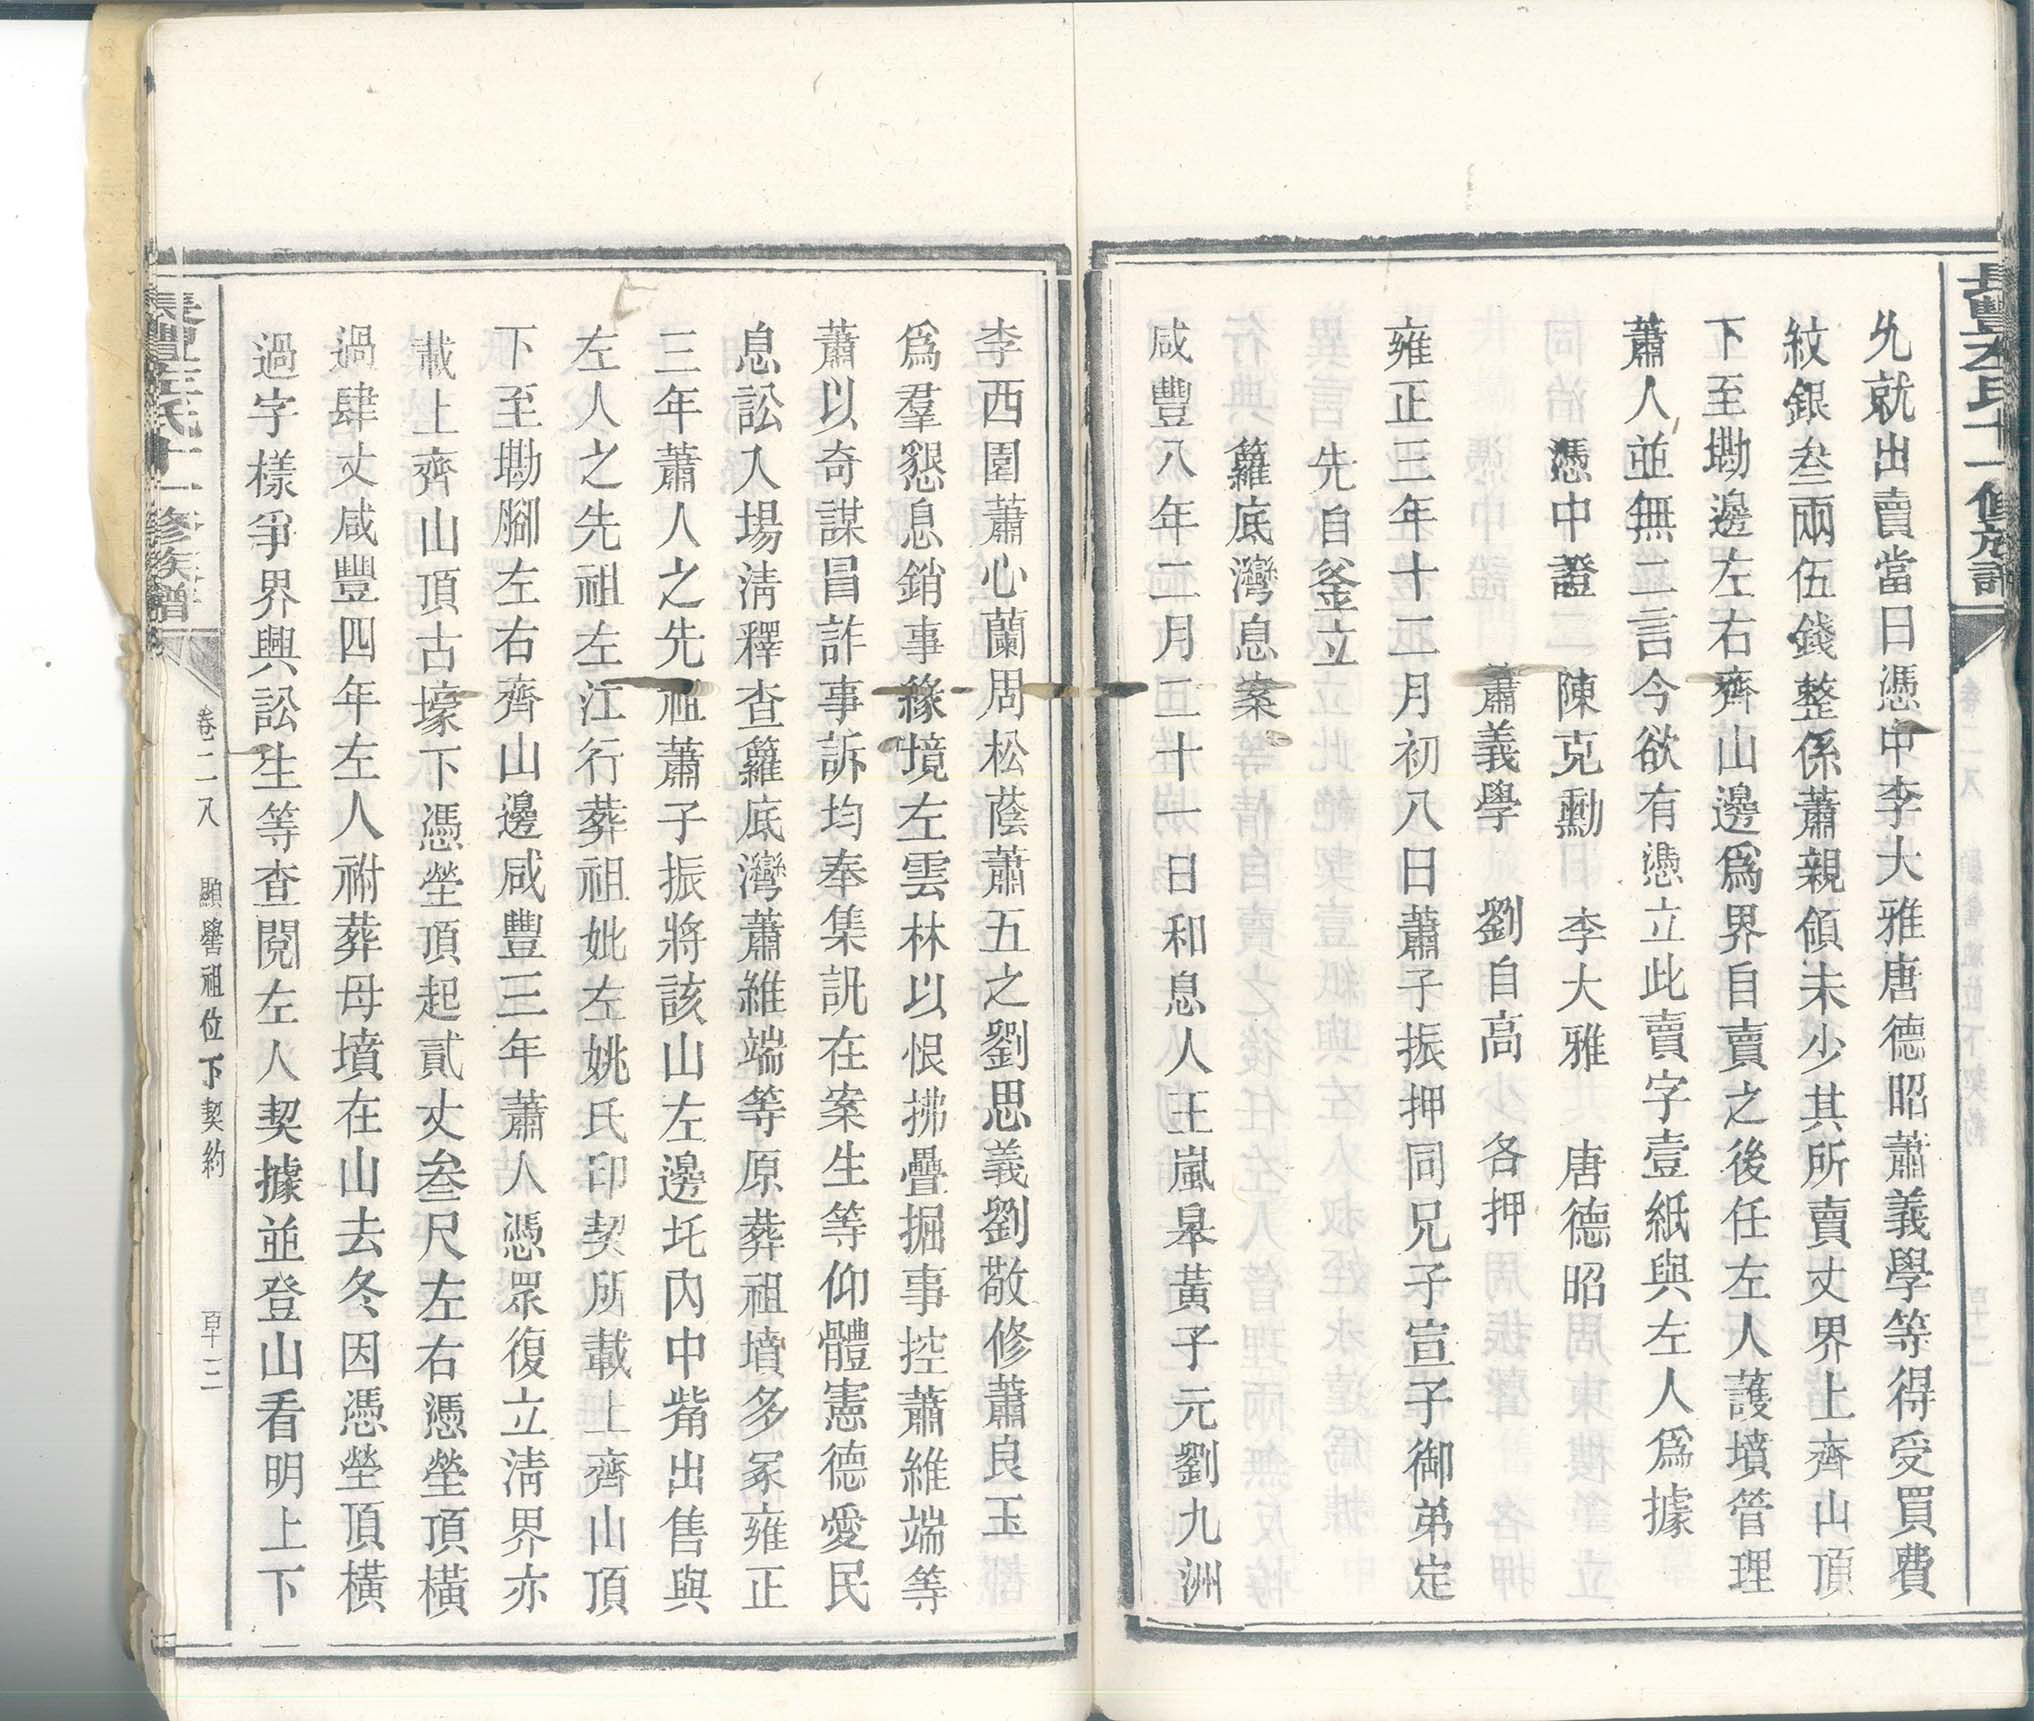 長豐左氏十一修族譜
允就出賣當日憑中李大雅唐德昭蕭義學等得受買費
紋銀叁兩伍錢整係蕭親領未少其所賣丈界上齊山頂
下至墈邊左右齊山邊爲界自賣之後任左人護墳管理
蕭人並無二言今欲有憑立此賣字壹紙與左人爲據
憑中證 陳克勳 李大雅 唐德昭
蕭義學 劉自高 各押
雍正三年十二月初八日蕭子振押同兄子宣子御弟定
先自釜立
籮底灣息案
咸豐八年二月二十一日和息人王嵐皋黃子元劉九洲
李西園蕭心蘭周松蔭蕭五之劉思義劉敬修蕭良玉
爲羣懇息銷事緣境左雲林以恨拂疊掘事控蕭維端等
蕭以奇謀冒詐事訴均奉集訊在案生等仰體憲德愛民
息訟入場清釋查籮底灣蕭維端等原葬祖墳多冢雍正
三年蕭人之先祖蕭子振將該山左邊圫內中嘴出售與
左人之先祖左江行葬祖妣左姚氏印契所載上齊山頂
下至墈腳左右齊山邊咸豐三年蕭人憑眾復立清界亦
載上齊山頂古壕下憑塋頂起貳丈叁尺左右憑塋頂橫
過肆丈咸豐四年左人祔葬母墳在山去冬因憑塋頂橫
過字樣爭界興訟生等查閱左人契據並登山看明上下
長豐左氏十一修族譜
卷二八 顯譽祖位下契約 百十三